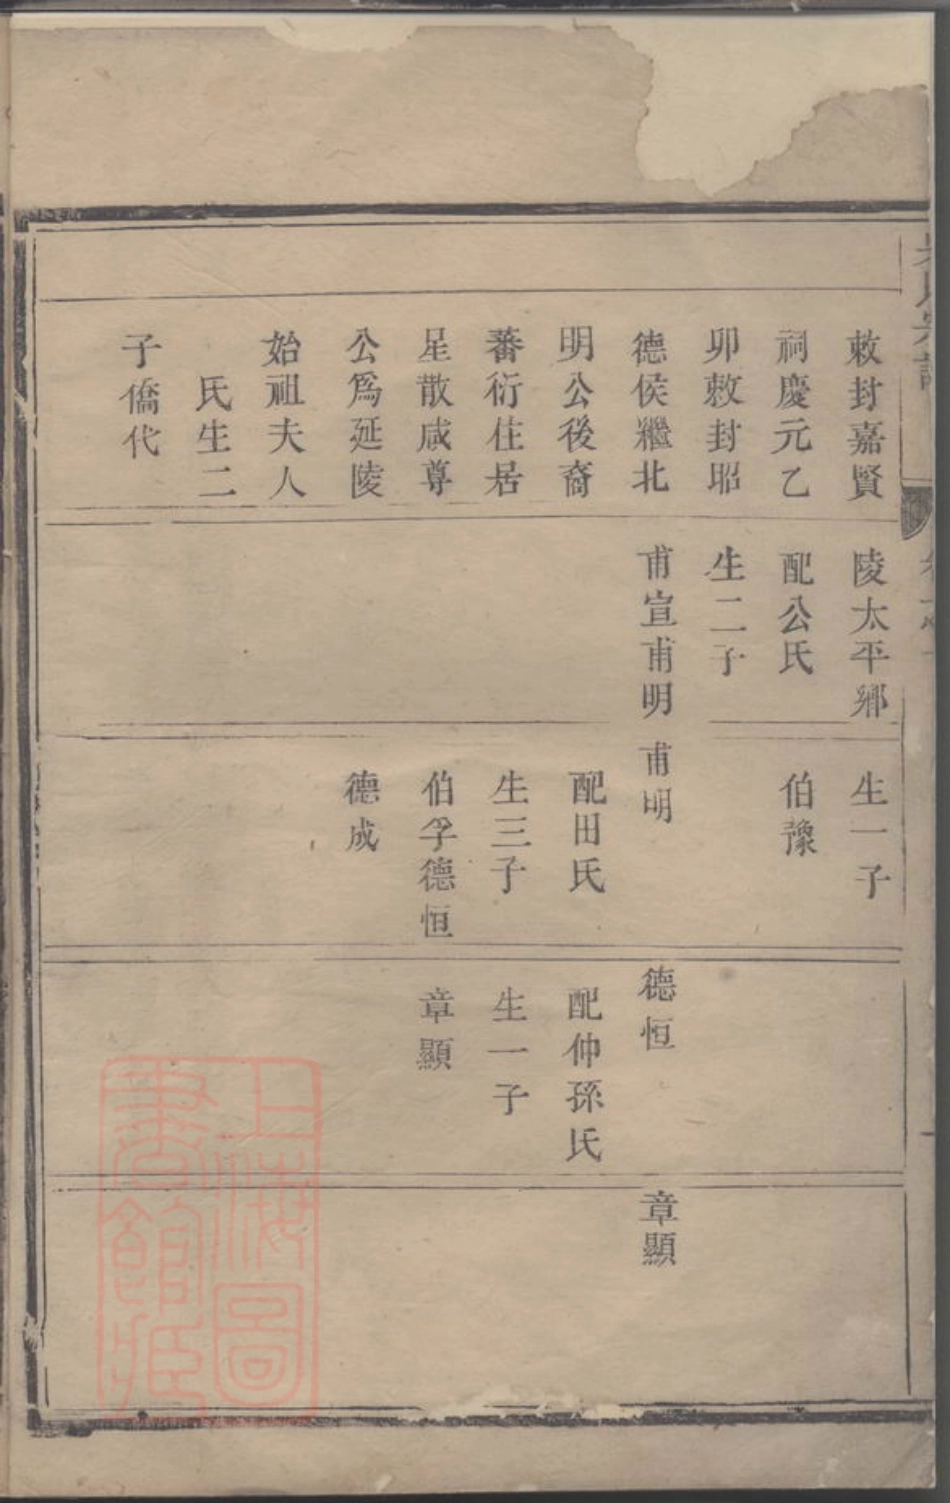 敕封嘉賢
祠慶元乙
卯敕封昭
德侯繼北
明公後裔
蕃衍住居
星散咸尊
公爲延陵
始祖夫人
氏生二
子僑代
陵太平鄉
配公氏
生二子
甫宣甫明
生一子
伯豫
甫明
配田氏
生三子
伯孚德恒
德成
德恒
配仲孫氏
生一子
章顯
章顯
上海圖
書館藏